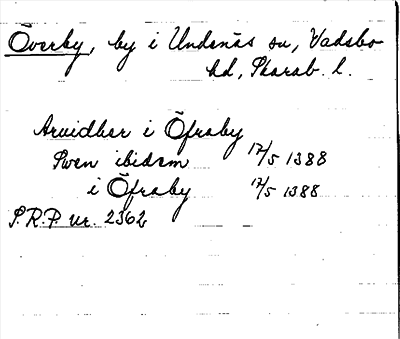 Överby, by i Undenäs sn, Vadsbo
hd, Skarab. l.
Arvidber i Öfraby
Swen ibidem 17/5 1388
i Öfraby 17/5 1388
S.R.P. nr. 2362